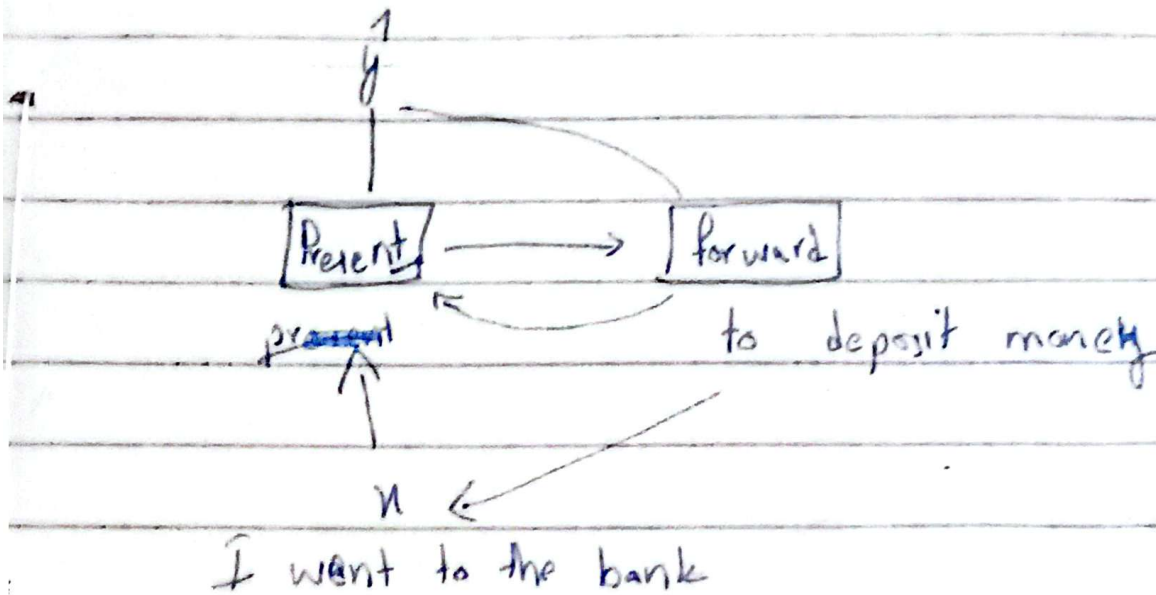 ŷ
Present forward
present
to deposit money
x
I went to the bank